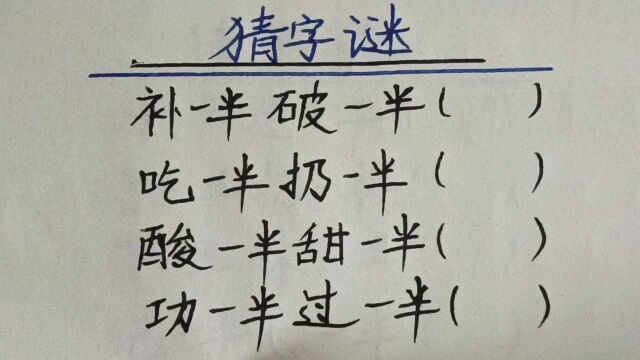 猜字谜
补一半破一半( )
吃一半扔一半( )
酸一半甜一半( )
功一半过一半( )